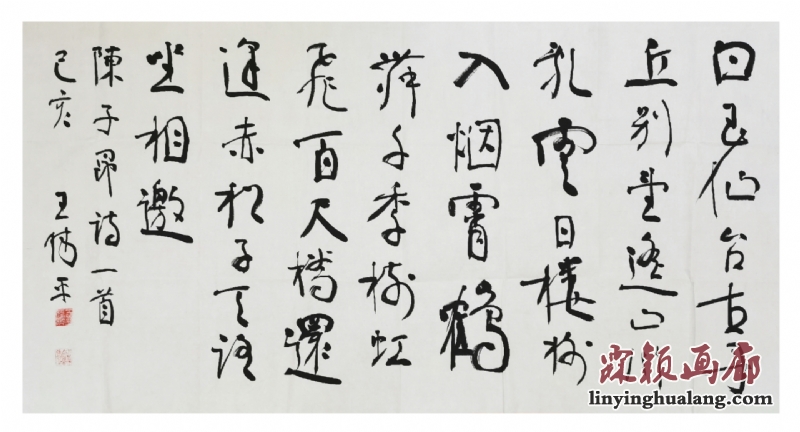 白玉仙台古丹
丘别望遥山川
乱雲日楼榭
入烟霄鶴
舞千年樹虹
飛百尺橋還
逢赤松子天路
坐相邀
陳子昂诗一首
己亥 王 平
深颖画廊
linyinghualang.com